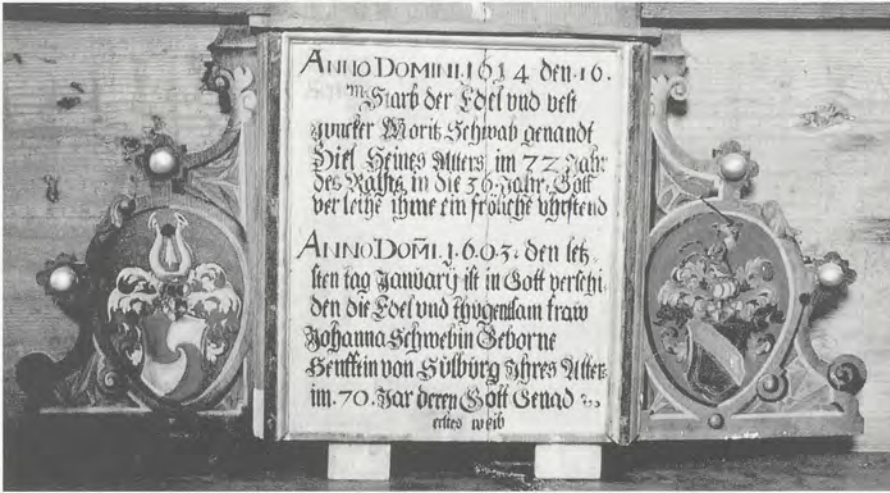 ANNO DOMINI. 1614 den. 16.
Starb der Edel vnd vest
Juncker Moritz Schwab genandt
Diel Seines Alters im 72 Jahr
des Rahts, in die 36 Jahr, Gott
verleihe ihme ein fröliche vhrstend
ANNO DOM̄I. 1.6.0.3. den letz,
sten tag Januarÿ ist in Gott verschi,
den die Edel vnd thugentsam fraw
Johanna Schwebin Geborne
Senfftin von Sülburg Ihres Alters
im. 70. Jar deren Gott Genad
erstes weib